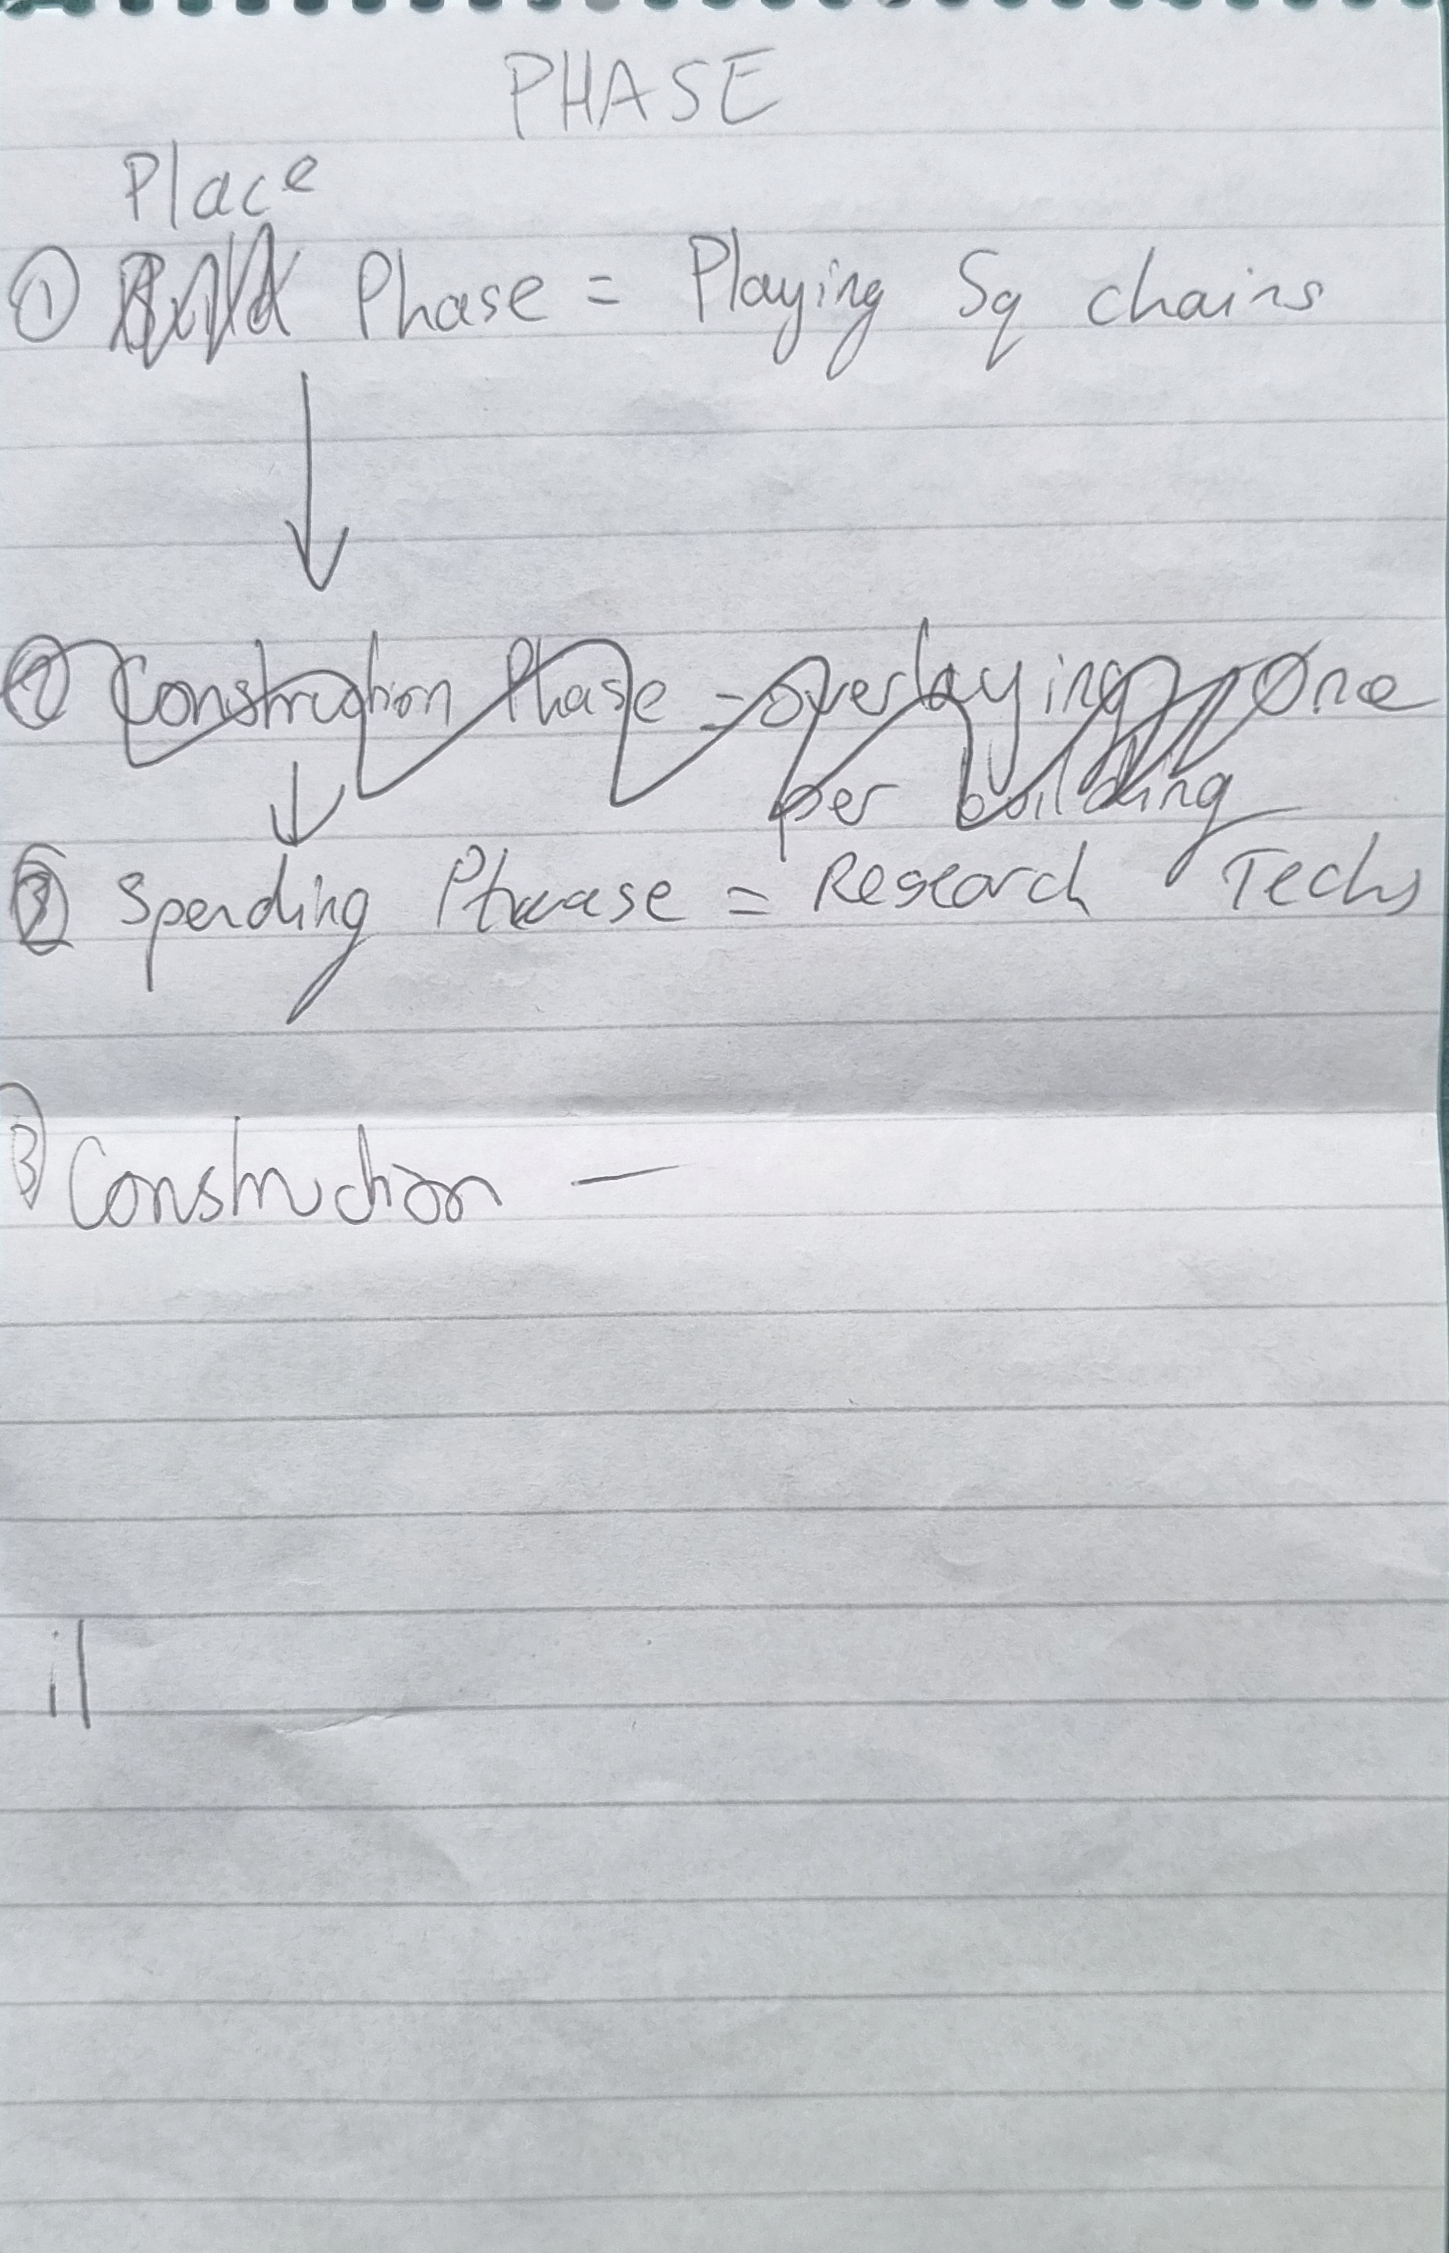 PHASE
Place
① Build Phase = Playing Sq chains
② Construction Phase = overlaying one
per building
② Spending Phrase = Research Techs
③ Construction —
il